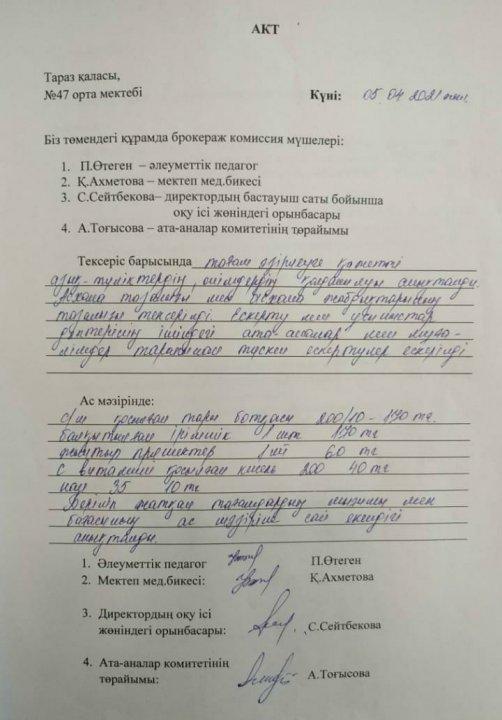 АКТ
Тараз қаласы,
№47 орта мектебі
Күні: 05 04 2021 жыл.
Біз төмендегі құрамда брокераж комиссия мүшелері:
1. П.Өтеген – әлеуметтік педагог
2. Қ.Ахметова – мектеп мед.бикесі
3. С.Сейтбекова– директордың бастауыш саты бойынша
оқу ісі жөніндегі орынбасары
4. А.Тоғысова – ата-аналар комитетінің төрайымы
Тексеріс барысында тағам әзірлеуге қажетті
азық-түліктердің, өнімдердің қолданылуы анықталды.
Асхана тазалығы мен асхана жабдықтарының
тазалығы тексерілді. Ескерту мен ұсыныстар
дәптерінің ішіндегі ата-аналар мен мұға-
лімдер тарапынан түскен ескертулер ескерілді
Ас мәзірінде:
с/м қосылған тары ботқасы 200/10 - 130 тг.
балқытылған ірімшік 1 шт 130 тг
1 шт 60 тг
С витамині қосылған кисель 200 40 тг
нан 35 10 тг
Беріліп жатқан тағамдардың мен
бағасының ас мәзіріне сай екендігі
анықталды.
1. Әлеуметтік педагог П.Өтеген
2. Мектеп мед.бикесі: Қ.Ахметова
3. Директордың оқу ісі
жөніндегі орынбасары: С.Сейтбекова
4. Ата-аналар комитетінің
төрайымы: А.Тоғысова